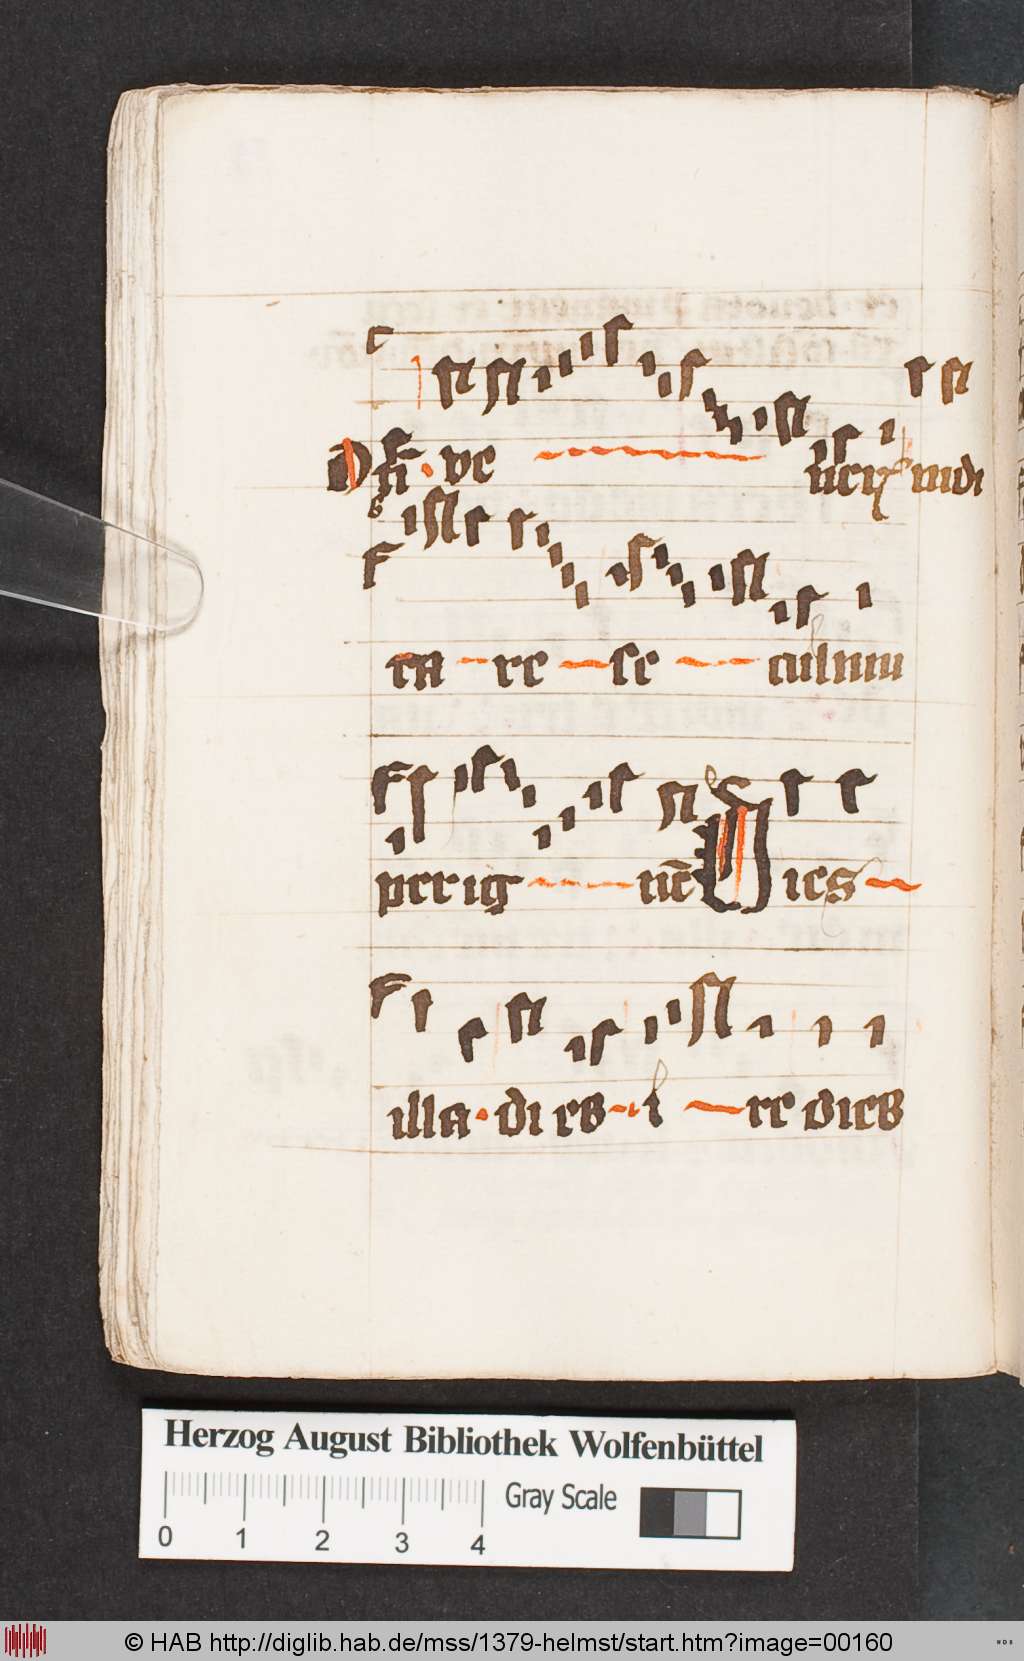 Dū · ve neris iudi
ca re se culum
per ig nē Dies
illa · di es · i re dies
Herzog August Bibliothek Wolfenbüttel
Gray Scale
0 1 2 3 4
© HAB http://diglib.hab.de/mss/1379-helmst/start.htm?image=00160